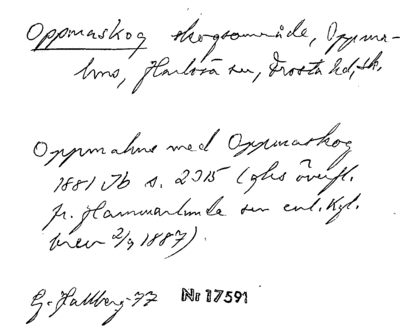 Oppmaskog skogsområde, Oppma-
hus, Harlösa sn, Frosta hd, Sk.
Oppmahus med Oppmaskog
1881 Jb s. 2315 (ghs överfl.
fr. Hammarlunda sn enl. Kgl.
brev 2/9 1887).
G. Hallberg -77 Nr 17591